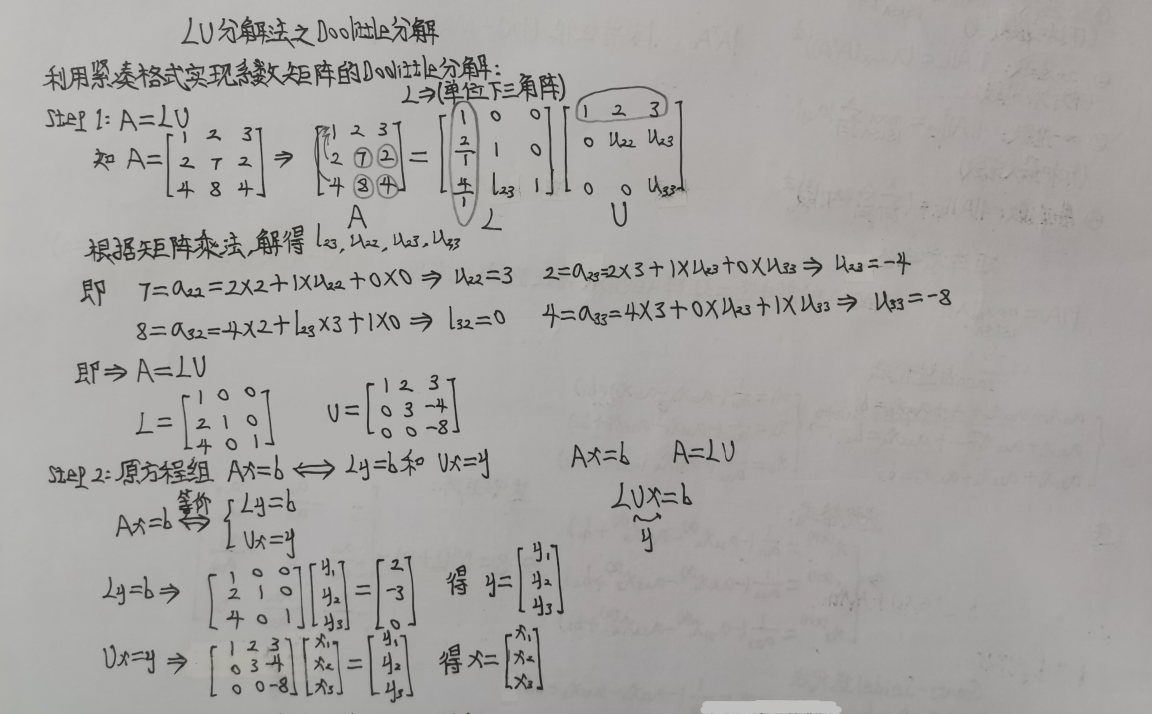 LU分解法之Doolittle分解
利用紧凑格式实现系数矩阵的Doolittle分解:
L⇒(单位下三角阵)
Step 1: A=LU
知 A=[1 2 3; 2 7 2; 4 8 4] ⇒ [1 2 3; 2 7 2; 4 8 4] = [1 0 0; 2/1 1 0; 4/1 l23 1] [1 2 3; 0 u22 u23; 0 0 u33]
A L U
根据矩阵乘法,解得 l23, u22, u23, u33
即 7=a22=2×2+1×u22+0×0 ⇒ u22=3 2=a23=2×3+1×u23+0×u33 ⇒ u23=-4
8=a32=4×2+l23×3+1×0 ⇒ l32=0 4=a33=4×3+0×u23+1×u33 ⇒ u33=-8
即⇒ A=LU
L=[1 0 0; 2 1 0; 4 0 1] U=[1 2 3; 0 3 -4; 0 0 -8]
Step 2: 原方程组 Ax=b ⟺ Ly=b 和 Ux=y Ax=b A=LU
LUx=b
y
Ax=b 等价⟺ { Ly=b
Ux=y
Ly=b ⇒ [1 0 0; 2 1 0; 4 0 1] [y1; y2; y3] = [2; -3; 0] 得 y=[y1; y2; y3]
Ux=y ⇒ [1 2 3; 0 3 -4; 0 0 -8] [x1; x2; x3] = [y1; y2; y3] 得 x=[x1; x2; x3]